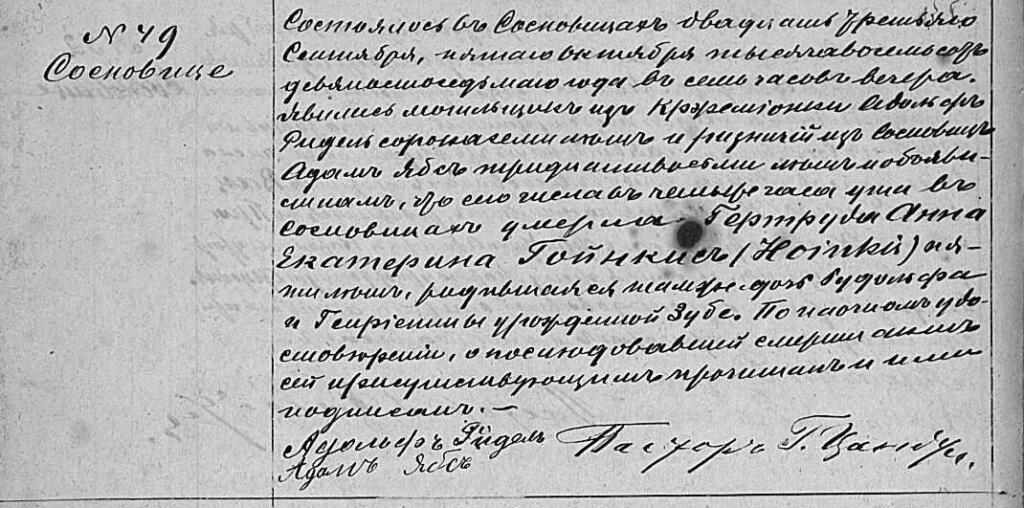 N 49
Сосновице
Состоялось въ Сосновицахъ двадцать третьяго
Сентября, пятаго октября тысяча восемьсотъ
девяносто седьмаго года въ семь часовъ вечера.
Явились могильщикъ изъ Кржеміонки Адольфъ
Ридель сорока семи лѣтъ и ризничій изъ Сосновицъ
Адамъ Ябсъ тридцати восьми лѣтъ и объяви-
ли намъ, что сего числа въ четыре часа утра въ
Сосновицахъ умерла Гертруда Анна
Екатерина Гойнкисъ (Hoinkis) пя-
ти лѣтъ, родившаяся тамже дочь Рудольфа
и Генріетты урожденной Зубе. По наочномъ удо-
стовѣреніи, о послѣдовавшей смерти актъ
сей присутствующимъ прочитанъ и ими
подписанъ. —
Адольфъ Ридель Пасторъ Г.
Адамъ Ябсъ